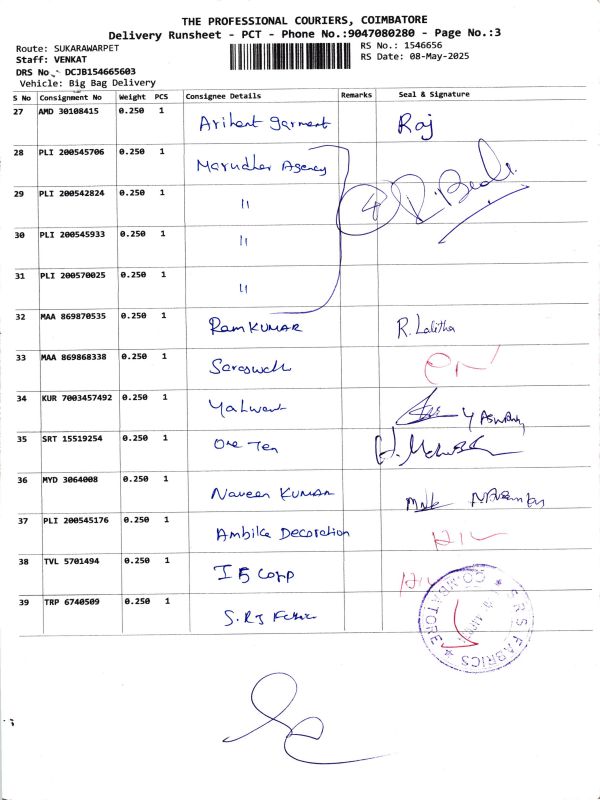 THE PROFESSIONAL COURIERS, COIMBATORE
Delivery Runsheet - PCT - Phone No.:9047080280 - Page No.:3
Route: SUKARAWARPET
Staff: VENKAT
DRS No. DCJB154665603
Vehicle: Big Bag Delivery
RS No.: 1546656
RS Date: 08-May-2025
S No Consignment No Weight PCS Consignee Details Remarks Seal & Signature
27 AMD 30108415 0.250 1 Arihent garment Raj
28 PLI 200545706 0.250 1 Marudher Agency
29 PLI 200542824 0.250 1 " 4
30 PLI 200545933 0.250 1 "
31 PLI 200570025 0.250 1 "
32 MAA 869870535 0.250 1 Ram KUMAR R. Lalitha
33 MAA 869868338 0.250 1
34 KUR 7003457492 0.250 1 Yashwant
35 SRT 15519254 0.250 1 One Ten
36 MYD 3064008 0.250 1 Naveen KUMAR
37 PLI 200545176 0.250 1 Ambika Decoration
38 TVL 5701494 0.250 1 Corp
39 TRP 6740509 0.250 1
FABRICS
COIMBATORE